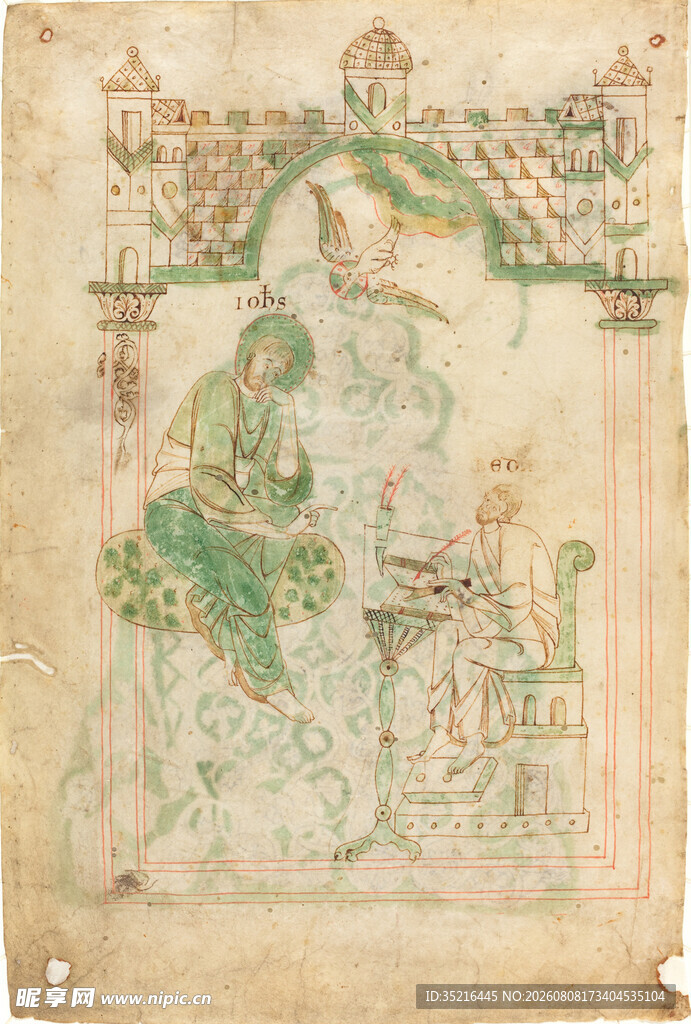 ioħs
昵享网 www.nipic.cn
ID:35216445 NO:20260808173404535104